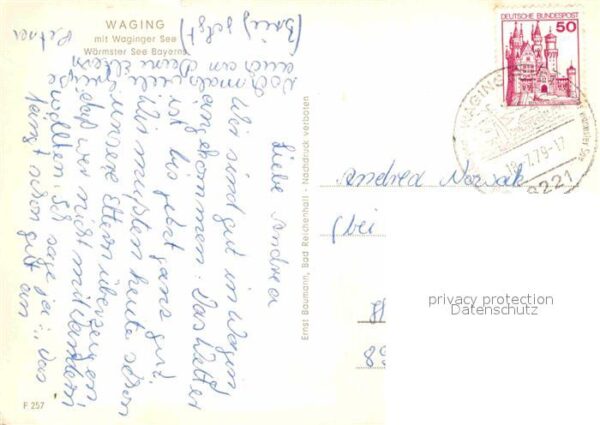 WAGING
mit Waginger See
Wärmster See Bayerns
Liebe Andrea
Wir sind gut in Waging
angekommen. Das Wetter
ist bis jetzt ganz gut.
Wir mußten heute schon
unsere Eltern überzeugen
daß wir nicht mitwandern
wollten. Ich sage ja: „Das
fängt schon gut an
Nochmals viele Grüße
auch an Deine Eltern
(Brief folgt)
Ernst Baumann, Bad Reichenhall - Nachdruck verboten
F 257
DEUTSCHE BUNDESPOST
50
WAGING
18.7.79-17
8221
Andrea Nowak
(bei
89
privacy protection
Datenschutz